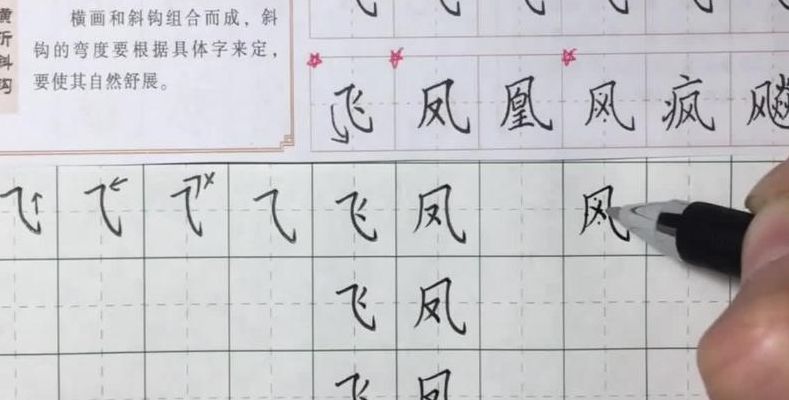 横折斜钩
横画和斜钩组合而成，斜
钩的弯度要根据具体字来定，
要使其自然舒展。
飞 凤 凰 风 疯 飚
⺄ ⺄ ⺄ ⺄ 飞 凤 风
飞 凤
飞 凤